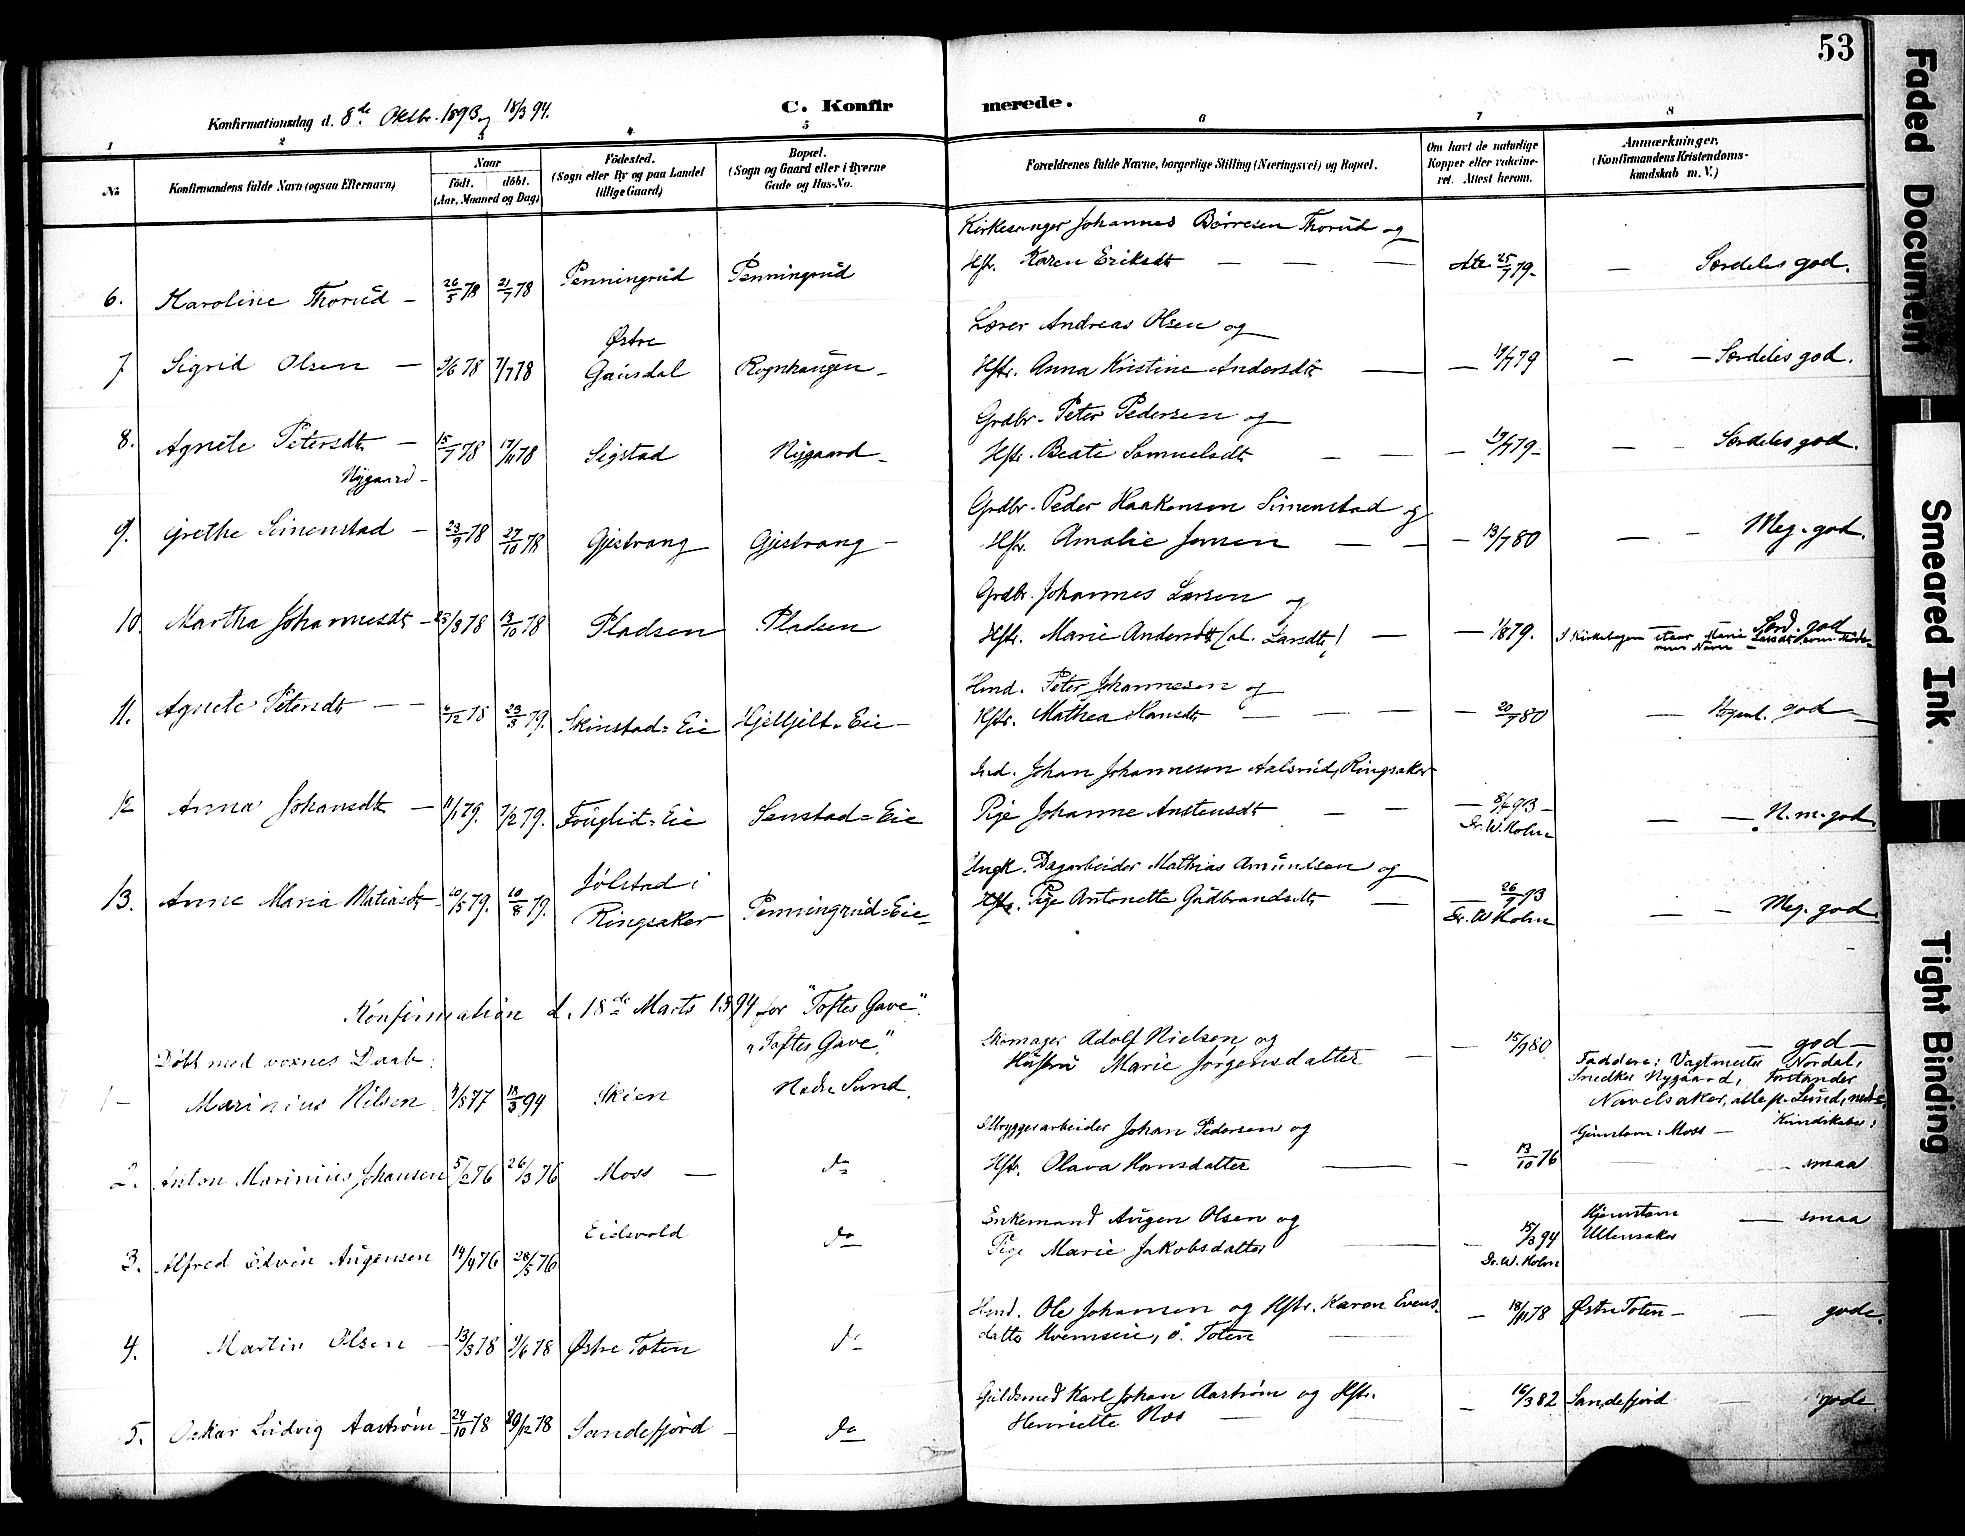 53
Faded Document
Smeared Ink
Tight Binding
Konfirmationsdag d. 8de Oktbr. 1893 og 18/3 94.
C. Konfirmerede.
1 2 3 4 5 6 7 8
No
Konfirmandens fulde Navn (ogsaa Efternavn)
Naar
født. døbt.
(Aar, Maaned og Dag)
Fødested.
(Sogn eller By og paa Landet
tillige Gaard)
Bopæl.
(Sogn og Gaard eller i Byerne
Gade og Hus-No.
Forældrenes fulde Navne, borgerlige Stilling (Næringsvei) og Bopæl.
Om havt de naturlige
Kopper eller vakcine-
ret. Attest herom.
Anmærkninger.
(Konfirmandens Kristendoms-
kundskab m. V.)
Kirkesanger Johannes Børresen Thorud og
6. Karoline Thorud – 26/5 78 21/7 78 Penningrud Penningrud Hstr. Karen Eriksdt — — — Atte. 25/7 79. — Særdeles god.
Lærer Andreas Olsen og
7 Sigrid Olsen — 3/6 78 7/7 78 Østre Gausdal Rognhaugen – Hstr. Anna Kristine Andersdt — — 19/7 79 — — Særdeles god.
Grdbr. Peter Pedersen og
8. Agnete Petersdt – 15/7 78 17/11 78 Sigstad Nygaard – Hstr. Beate Samuelsdt — — — 19/7 79 — — Særdeles god.
Nygaard –
Grdbr. Peder Haakensen Simenstad og
9. Grethe Simenstad – 23/9 78 27/10 78 Gjestvang Gjestvang – Hstr. Amalie Jensen — — — 13/7 80 — – Meg. god.
Grdbr. Johannes Larsen og
10. Martha Johannesdt – 25/8 78 13/10 78 Pladsen Pladsen Hstr. Marie Andersdt (al. Larsdt) — — 1/8 79. Særd. god
I Kirkebogen staar Marie Larsdt
Hmd. Peter Johannesen og
11. Agnete Petersdt – – 6/12 78 23/3 79. Skinstad=Eie Hjelljelt=Eie – Hstr. Mathea Hansdt — — — — 20/7 80 — god
Ind. Johan Johannesen Aalsrud, Ringsaker
12 Anna Johansdt – 11/1 79. 7/2 79. Fuglid=Eie Senstad=Eie Pige Johanne Anstensdt — — — 8/4 93 – — – N. m. god
Dr. W. Holm
Ungk. Dagarbeider Mathias Amundsen og
13. Anne Maria Matiasdt 20/5 79. 10/8 79. Jølstad i Ringsaker Penningrud=Eie – Hstr. Pige Antonette Gudbrandsdt — — 26/9 93 — – Meg. god
Dr. W Holm
Konfirmation d. 18de Marts 1894 for "Toftes Gave".
Døbt med voxnes Daab:
1 – Marinius Nilsen 4/5 77 18/3 94 Skien "Toftes Gave", Nedre Sund. Skomager Adolf Nielsen og
Hustru Marie Jørgensdatter — — 15/9 80 — god —
Faddere: Vagtmester Nordal,
Snedker Nygaard, Forstander
Navelsaker, alle p. Sund,
Kundskaber:
2. Anton Marinius Johansen 5/2 76 26/3 76 Moss — do Ølbryggerarbeider Johan Pedersen og
Hstr. Olava Hansdatter — — 13/10 76 Hjemstavn: Moss — — smaa
3. Alfred Edvin Augensen 19/4 76 28/5 76 Eidsvold do Enkemand Augen Olsen og
Pige Marie Jakobsdatter — — 15/3 94 Hjemstavn Ullensaker — smaa
Dr. W. Holm
4. Martin Olsen — 13/3 78 9/6 78 Østre Toten do Hmd. Ole Johansen og Hstr. Karen Evens-
datter Kvemseie, Ø. Toten — — 18/11 78 Østre Toten – – gode.
5. Oskar Ludvig Aastrøm 24/10 78 29/12 78 Sandefjord – do Guldsmed Karl Johan Aastrøm og Hstr.
Henriette Næs — — – 16/3 82 Sandefjord — gode